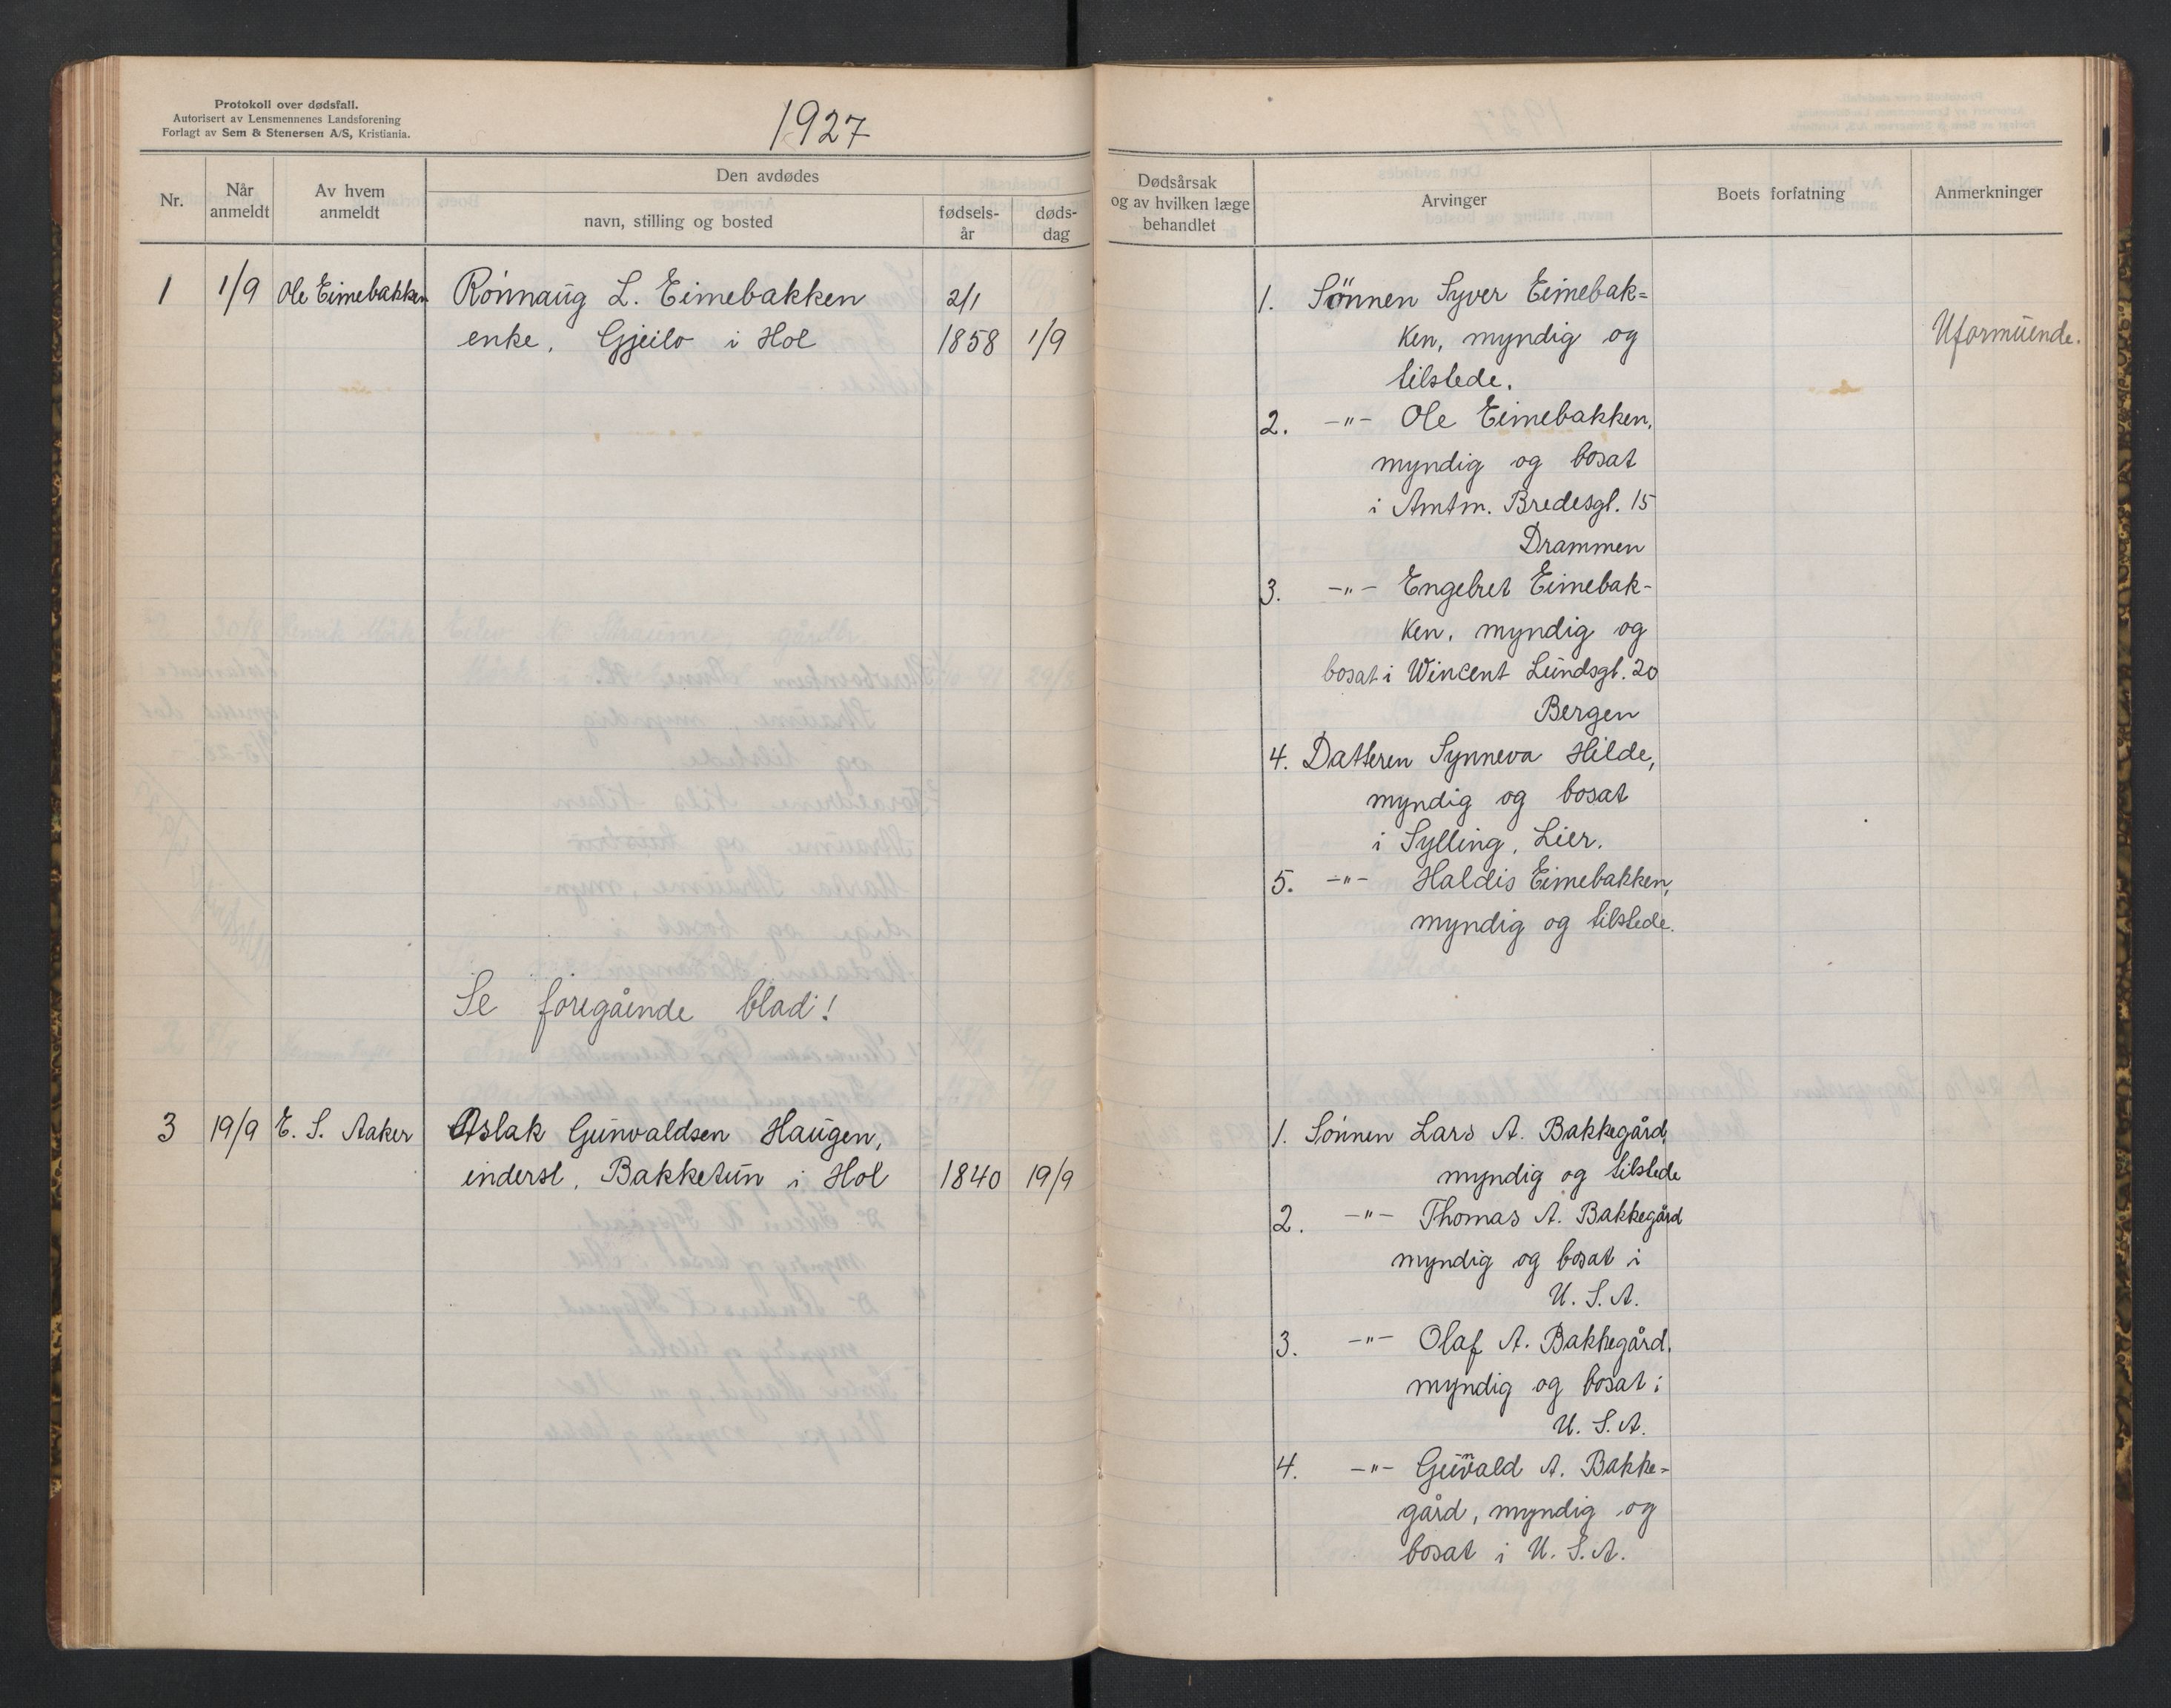 Protokoll over dødsfall.
Autorisert av Lensmennenes Landsforening
Forlagt av Sem & Stenersen A/S, Kristiania.
1927
Nr.
Når anmeldt
Av hvem anmeldt
Den avdødes
navn, stilling og bosted
fødsels-
år
døds-
dag
Dødsårsak
og av hvilken læge
behandlet
Arvinger
Boets forfatning
Anmerkninger
1 1/9 Ole Eimebakken Rönnaug L. Eimebakken 2/1
enke, Gjeilo i Hol 1858 1/9
1. Sönnen Syver Eimebak=
ken, myndig og
tilstede.
Uformuende.
2. -"- Ole Eimebakken,
myndig og bosat
i Amtm. Bredesgt. 15
Drammen
3. -"- Engebret Eimebak-
ken, myndig og
bosat i Wincent Lundsgt. 20
Bergen
4. Datteren Synneva Hilde,
myndig og bosat
i Sylling, Lier.
5. -"- Haldis Eimebakken,
myndig og tilstede.
Se foregående blad!
3 19/9 E. S. Aaker Aslak Gunvaldsen Haugen,
inderst, Bakketun i Hol 1840 19/9
1. Sönnen Lars A. Bakkegård,
myndig og tilstede
2. -"- Thomas A. Bakkegård
myndig og bosat i
U. S. A.
3. -"- Olaf A. Bakkegård,
myndig og bosat i
U. S. A.
4. -"- Gunvald A. Bakke=
gård, myndig og
bosat i U. S. A.